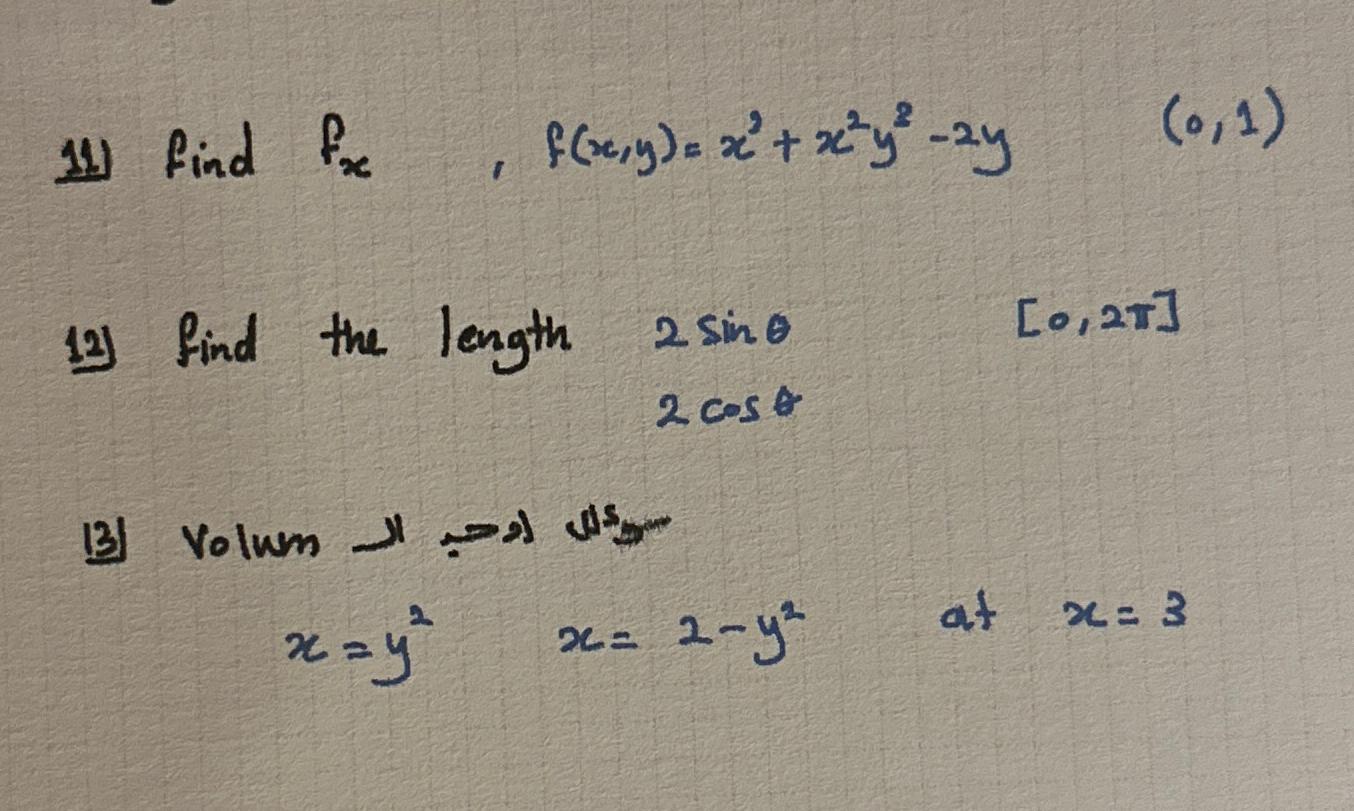 11) find fx , f(x,y) = x³ + x²y² - 2y (0,1)
12) find the length 2 sin θ [0, 2π]
2 cos θ
13) Volum سؤال اوجد الـ
x = y² x = 2 - y² at x = 3